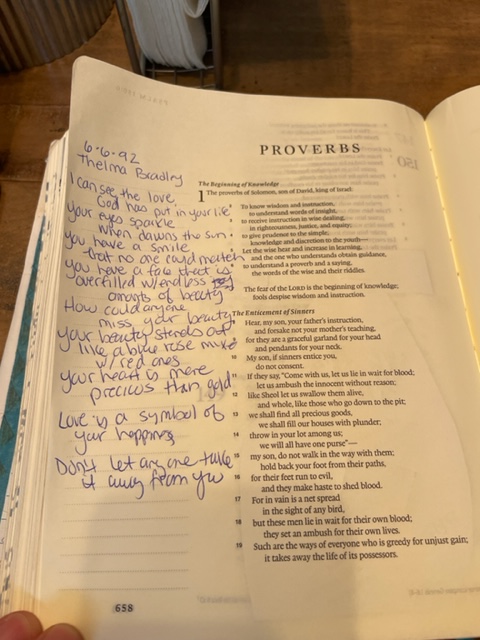 6-6-92
Thelma Bradley
I can see the love,
God has put in your life
your eyes sparkle
when dawns the sun.
you have a smile
that no one could match
you have a face that is
overfilled w/endless
amounts of beauty
How could anyone
miss your beauty
your beauty stands out
like a blue rose mixed
w/red ones
your heart is more
precious than gold
Love is a symbol of
your happiness
Don't let anyone take
it away from you
658
PROVERBS
The Beginning of Knowledge
1 The proverbs of Solomon, son of David, king of Israel:
2 To know wisdom and instruction,
to understand words of insight,
3 to receive instruction in wise dealing,
in righteousness, justice, and equity;
4 to give prudence to the simple,
knowledge and discretion to the youth—
5 Let the wise hear and increase in learning,
and the one who understands obtain guidance,
6 to understand a proverb and a saying,
the words of the wise and their riddles.
7 The fear of the LORD is the beginning of knowledge;
fools despise wisdom and instruction.
The Enticement of Sinners
8 Hear, my son, your father's instruction,
and forsake not your mother's teaching,
9 for they are a graceful garland for your head
and pendants for your neck.
10 My son, if sinners entice you,
do not consent.
11 If they say, "Come with us, let us lie in wait for blood;
let us ambush the innocent without reason;
12 like Sheol let us swallow them alive,
and whole, like those who go down to the pit;
13 we shall find all precious goods,
we shall fill our houses with plunder;
14 throw in your lot among us;
we will all have one purse"—
15 my son, do not walk in the way with them;
hold back your foot from their paths,
16 for their feet run to evil,
and they make haste to shed blood.
17 For in vain is a net spread
in the sight of any bird,
18 but these men lie in wait for their own blood;
they set an ambush for their own lives.
19 Such are the ways of everyone who is greedy for unjust gain;
it takes away the life of its possessors.